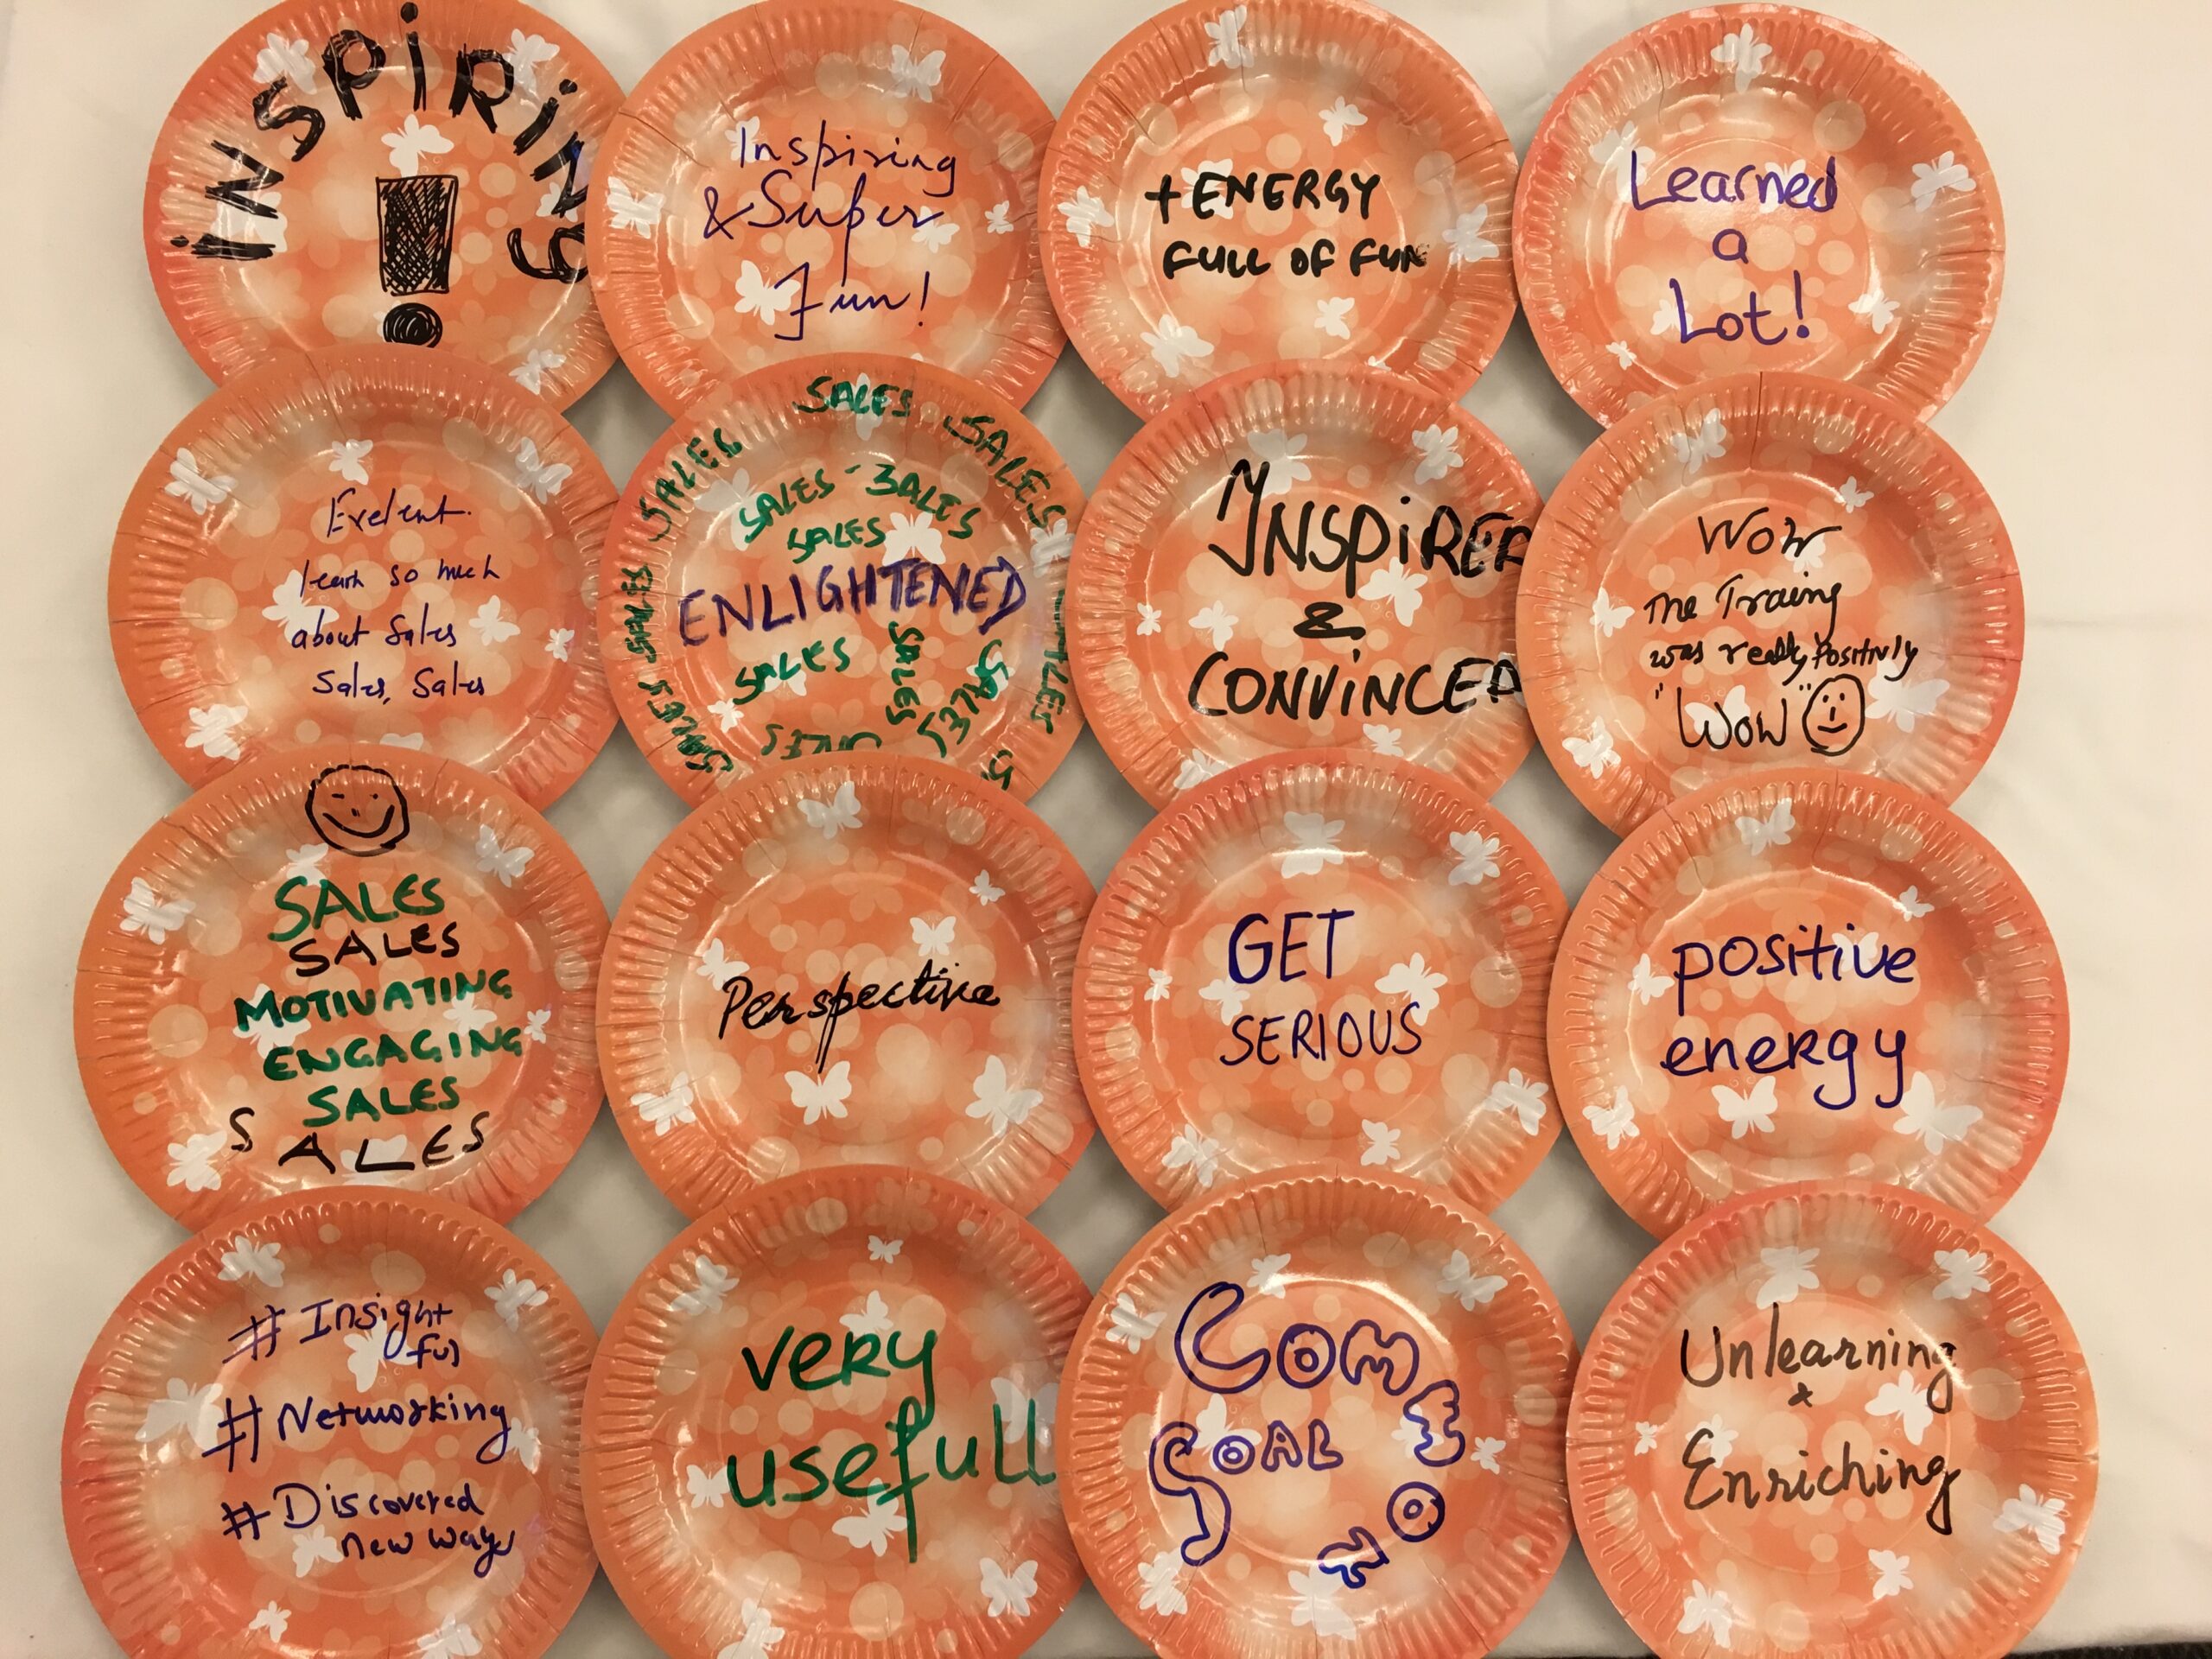 iNSPiRiNG
!
Inspiring
& Super
Fun!
+ ENERGY
FULL OF FUN
Learned
a
Lot!
Exelent.
learn so much
about Sales
Sales, Sales
SALES SALES
SALES
SALES - SALES
SALES
ENLIGHTENED
SALES
SALES
SALES
SALES
SALES
SALES
SALES
INSPiRED
&
CONViNCED
Wow
The Traing
was really, Positivly
"Wow"
SALES
SALES
MOTIVATING
ENGAGING
SALES
SALES
Perspective
GET
SERIOUS
positive
energy
# Insight
ful
# Networking
# Discovered
new ways
very
usefull
COME
TO
GOAL
Unlearning
+
Enriching